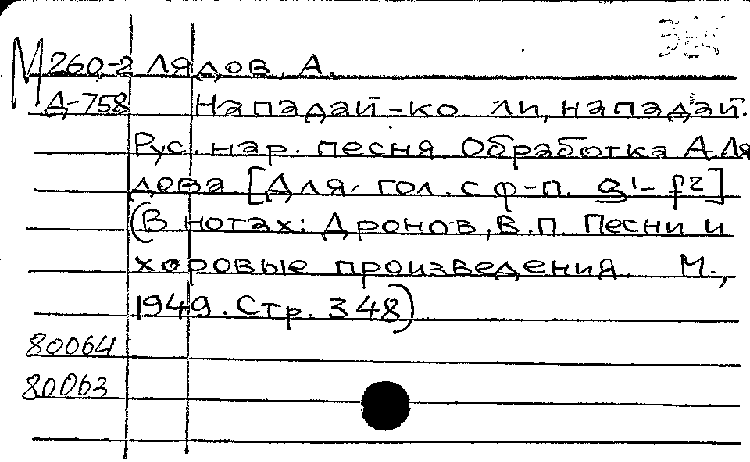 М 260-2 Лядов, А.
Д-758 Нападай-ко ли, нападай.
Рус. нар. песня Обработка А. Ля
дова. [Для гол. с ф-п. g¹-f²]
(В нотах: Дронов, В.П. Песни и
хоровые произведения. М.,
1949. Стр. 348)
80064
80063